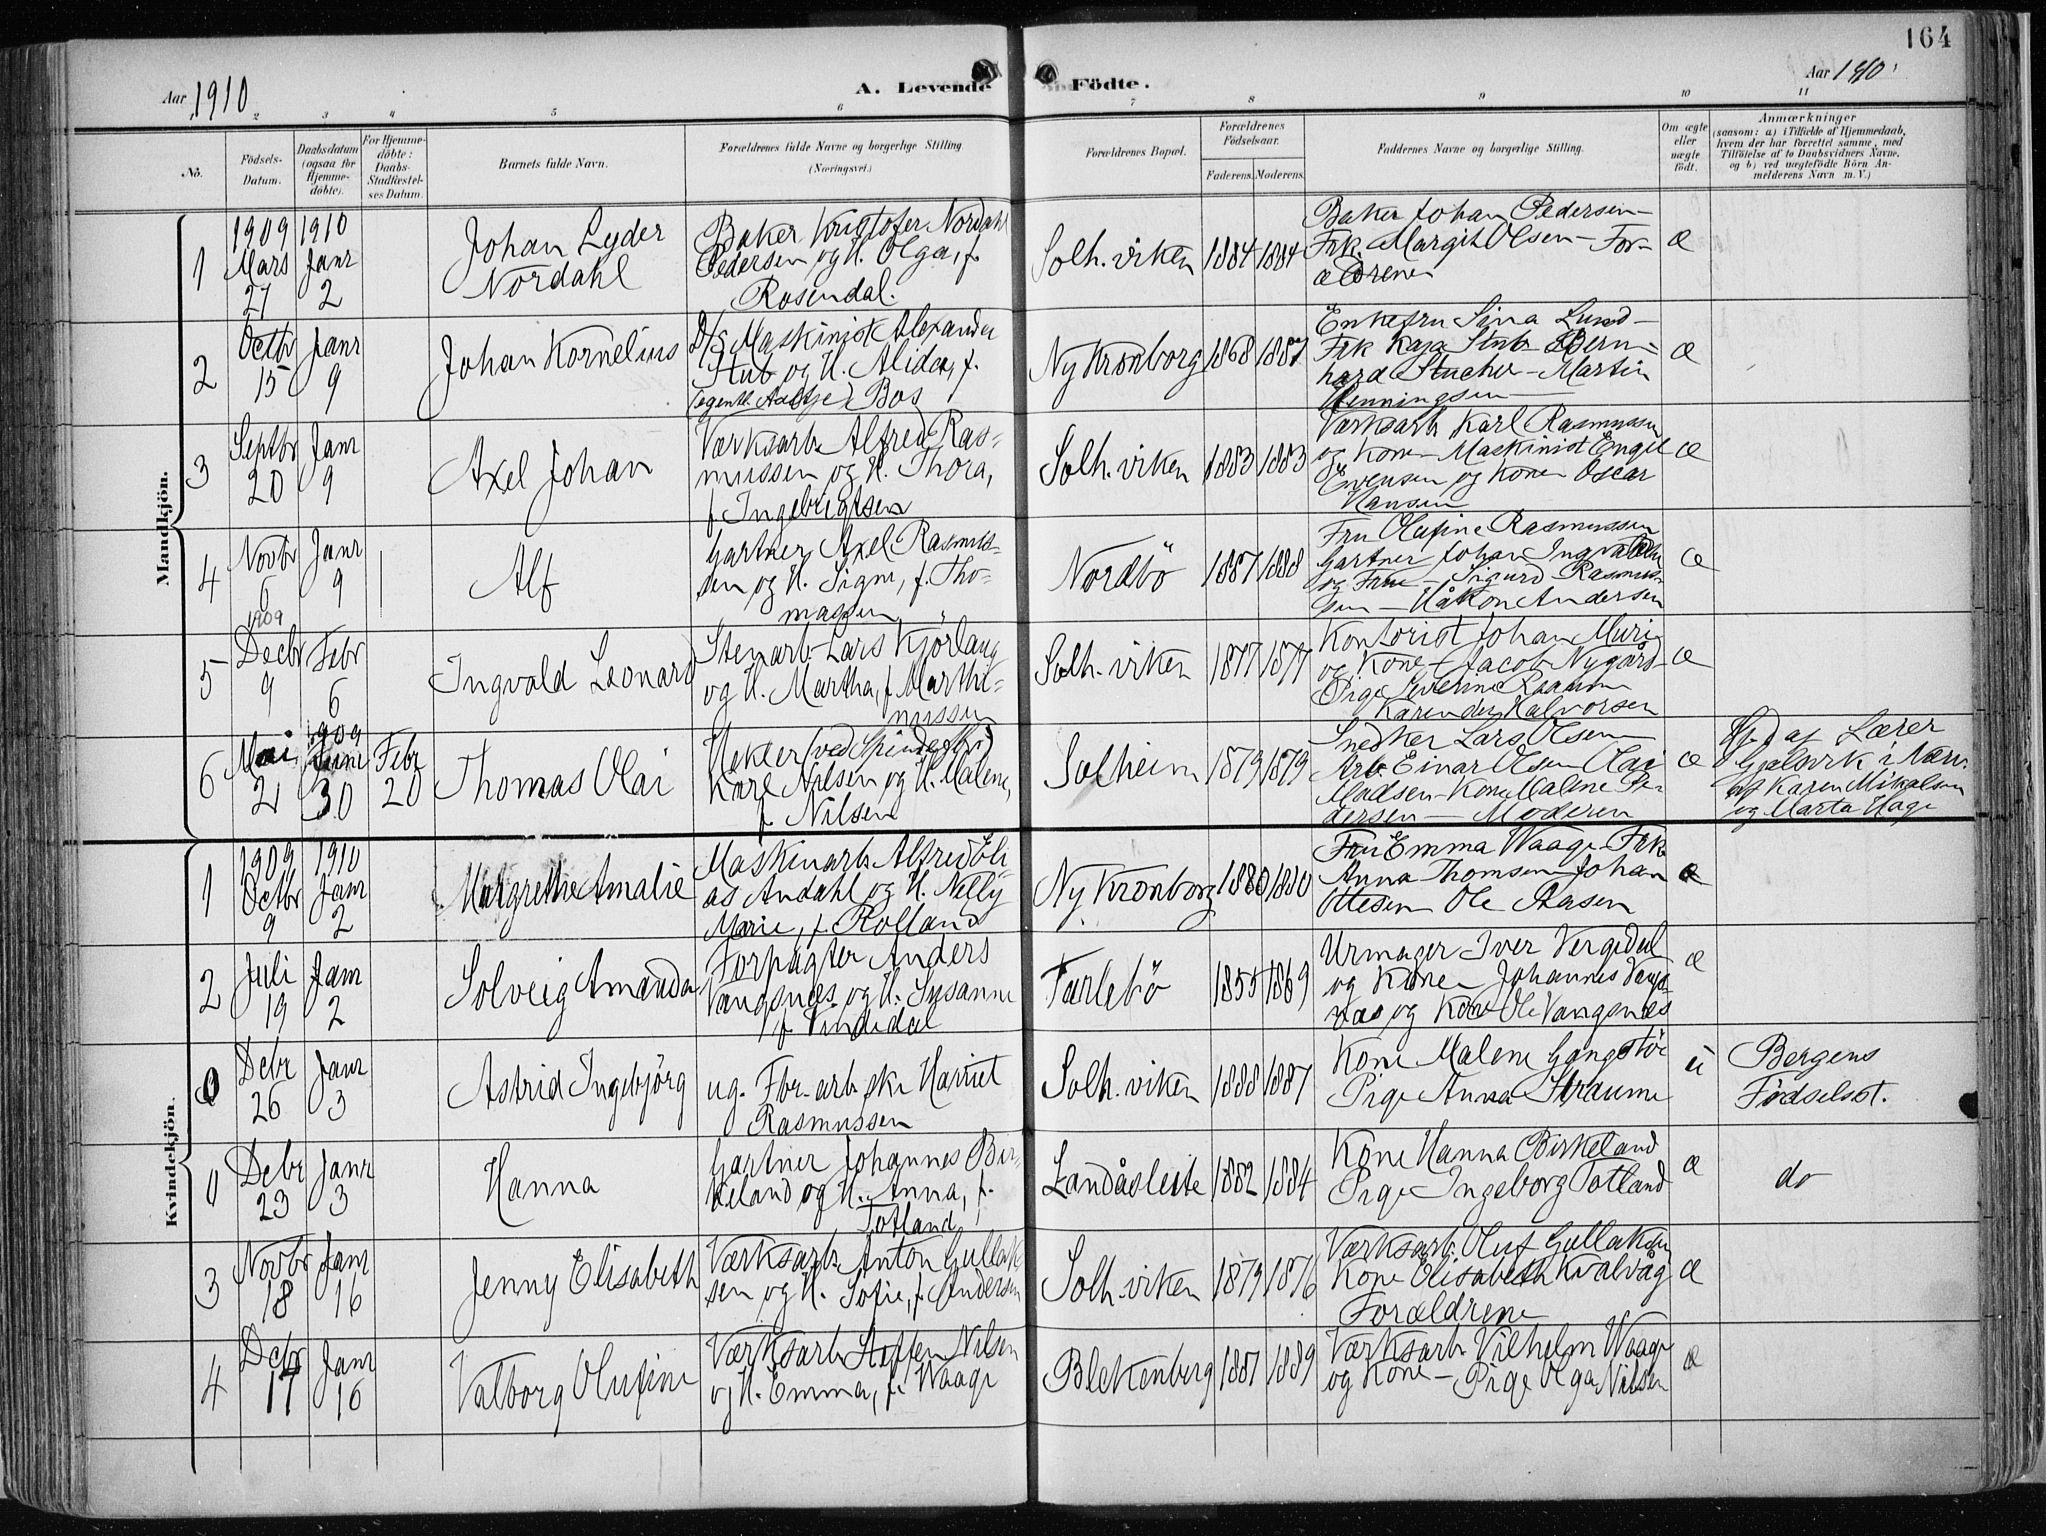 164
Aar 1910
A. Levende Födte.
Aar 1910
1 2 3 4 5 6 7 8 9 10 11
No.
Födsels-Datum.
Daabsdatum (ogsaa for Hjemme-döbte).
For Hjemme-döbte: Daabs-Stadfæstel-ses Datum.
Barnets fulde Navn.
Forældrenes fulde Navne og borgerlige Stilling. (Næringsvei.)
Forældrenes Bopæl.
Forældrenes Födselsaar.
Faderens. Moderens.
Faddernes Navne og borgerlige Stilling.
Om ægte eller uægte födt.
Anmærkninger
(saasom: a) i Tilfælde af Hjemmedaab, hvem der har forrettet samme, med Tilföielse af to Daabsvidners Navne, og b) ved uægtefödte Börn An-melderens Navn m. V.)
Mandkjön.
1
1909 Mars 27
1910 Janr 2
Johan Lyder
Nordahl
Baker Kristofer Nordahl
Pedersen og H. Olga, f.
Rosendal.
Solh.viken
1884 1884
Baker Johan Pedersen-
Frk. Margit Olsen - For-
ældrene
æ
2
Octbr 15
Janr 9
Johan Kornelius
D/S Maskinist Alexander
Stub og H. Alida, f.
(egentl. Aaltje) Bos
Ny Kronborg
1868 1887
Enkefru Sina Lund-
Frk Kaja Stub Bern-
hard Stucher - Martin
Henningsen
æ
3
Septbr 20
Janr 9
Axel Johan
Værksarb. Alfred Ras-
mussen og H. Thora,
f. Ingebrigtsen
Solh. viken
1883 1883
Værksarb Karl Rasmussen
og Kone - Maskinist Engel
Evensen og Kone Oscar
Hansen
æ
4
Novbr 6
Janr 9
Alf
Gartner Axel Rasmus-
sen og H. Signe, f. Tho-
massen
Nordbö
1887 1888
Fru Olufine Rasmussen
Gartner Johan Ingvaldsen
og Frue - Sigurd Rasmus-
sen - Håkon Andersen
æ
5
1909
Decbr 9
Febr 6
Ingvald Leonard
Stenarb. Lars Kjörlaug
og H. Martha, f. Marthi-
nussen
Solh. viken
1877 1877
Kontorist Johan Muri
og Kone - Jacob Nygård-
Pige Severine
Karen Halvorsen
æ
6
Mai 21
1909 Juni 30
Febr 20
Thomas Olai
Hekler (ved Spinderi)
Karl Nilsen og H. Malene,
f. Nilsen
Solheim
1879 1879
Snedker Lars Olsen
Arb. Einar Olsen Olai
Madsen - Kone Malene Pe-
dersen - Moderen
æ
Hj. d. af Lærer
i Nærv.
af Karen Mikalsen
og Marta Hage
Kvindekjön.
1
1909 Octbr 9
1910 Janr 2
Margrethe Amalie
Maskinarb. Alfred Eli-
as Andahl og H. Nelly
Marie, f. Rolland
Ny Kronborg
1880 1880
Fru Emma Waage Frk
Anna Thomsen Johan
Ottesen Ole Aasen
æ
2
Juli 19
Janr 2
Solveig Amanda
Forpagter Anders
Vangsnes og H. Susanne
f. Vindedal
Tarlebö
1855 1869
Urmager Iver Vergedal
og Kone Johannes
og Kone Ole Vangsnes
æ
0
Debr 26
Janr 3
Astrid Ingebjörg
ug. Fbr. arb.ske Harriet
Rasmussen
Solh. viken
1888 1887
Kone Malene Gangstöe
Pige Anna Straume
ü
Bergens
Födselsst.
0
Debr 23
Janr 3
Hanna
Gartner Johannes Bir-
keland og H. Anna, f.
Totland
Landåsleite
1882 1884
Kone Hanna Birkeland
Pige Ingeborg Totland
æ
do
3
Novbr 18
Janr 16
Jenny Elisabeth
Værksarb. Anton Gullak-
sen og H. Sofie, f. Andersen
Solh.viken
1879 1876
Værksarb. Oluf Gullaksen
Kone Elisabeth Kvalvåg
Forældrene
æ
4
Debr 17
Janr 16
Valborg Olufine
Værksarb. Steffen Nilsen
og H. Emma, f. Waage
Blekenberg
1887 1889
Værksarb. Vilhelm Waage
og Kone - Pige Olga Nilsen
æ